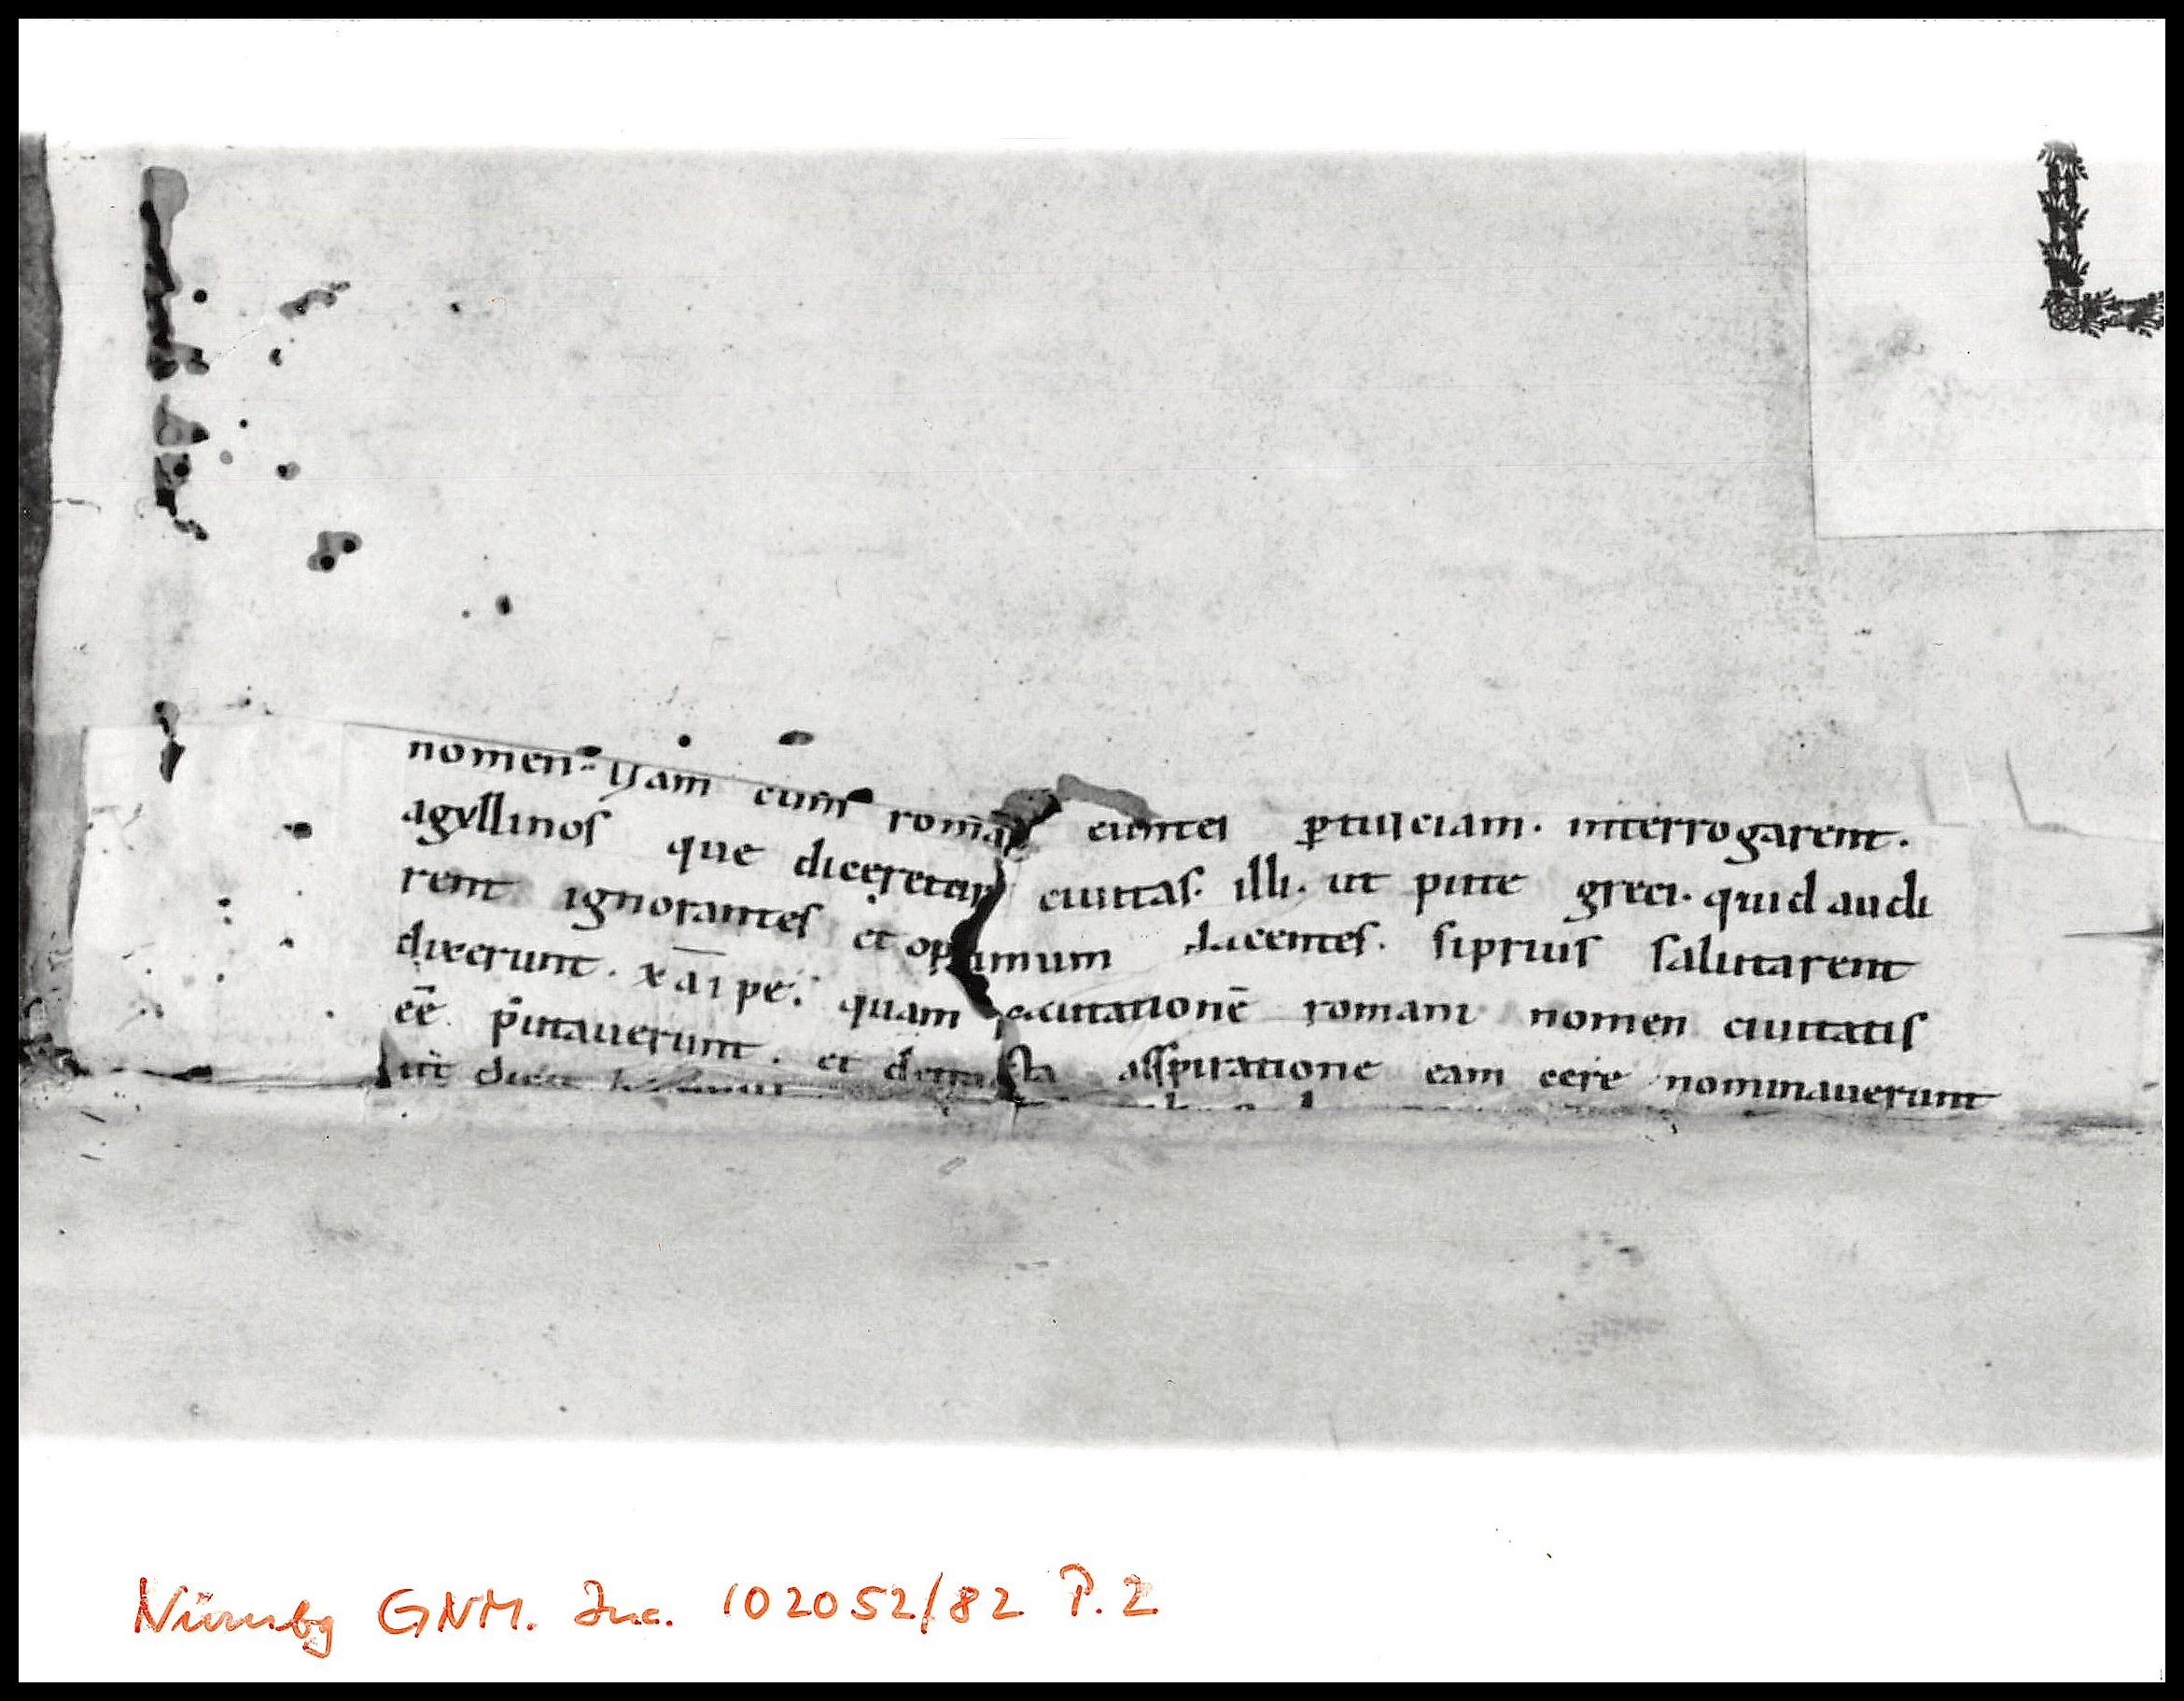 nomen. Nam cum romani euntes ꝑtusciam. interrogarent.
agyllinos que diceretur ciuitas. illi. ut pute greci. quid audi
rent ignorantes et optimum tacentes. si prius salutarent
dixerunt. χαῖρε. quam salutationē romani nomen ciuitatis
eē putauerunt. et detracta asspiratione eam cere nominauerunt
ut dicit
Nürnbg GNM. Inc. 102052/82 P. 2